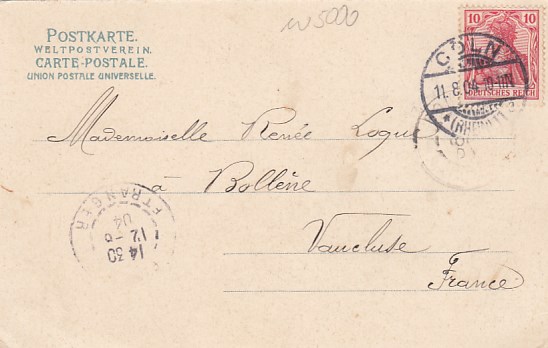 w 5000
POSTKARTE.
WELTPOSTVEREIN.
CARTE-POSTALE.
UNION POSTALE UNIVERSELLE.
10 10
DEUTSCHES REICH
CÖLN
11.8.04
*(RHEIN)1
Mademoiselle Renée Loque
à Bollène
Vaucluse
France
ETRANGER
14 30
12 - 8
04